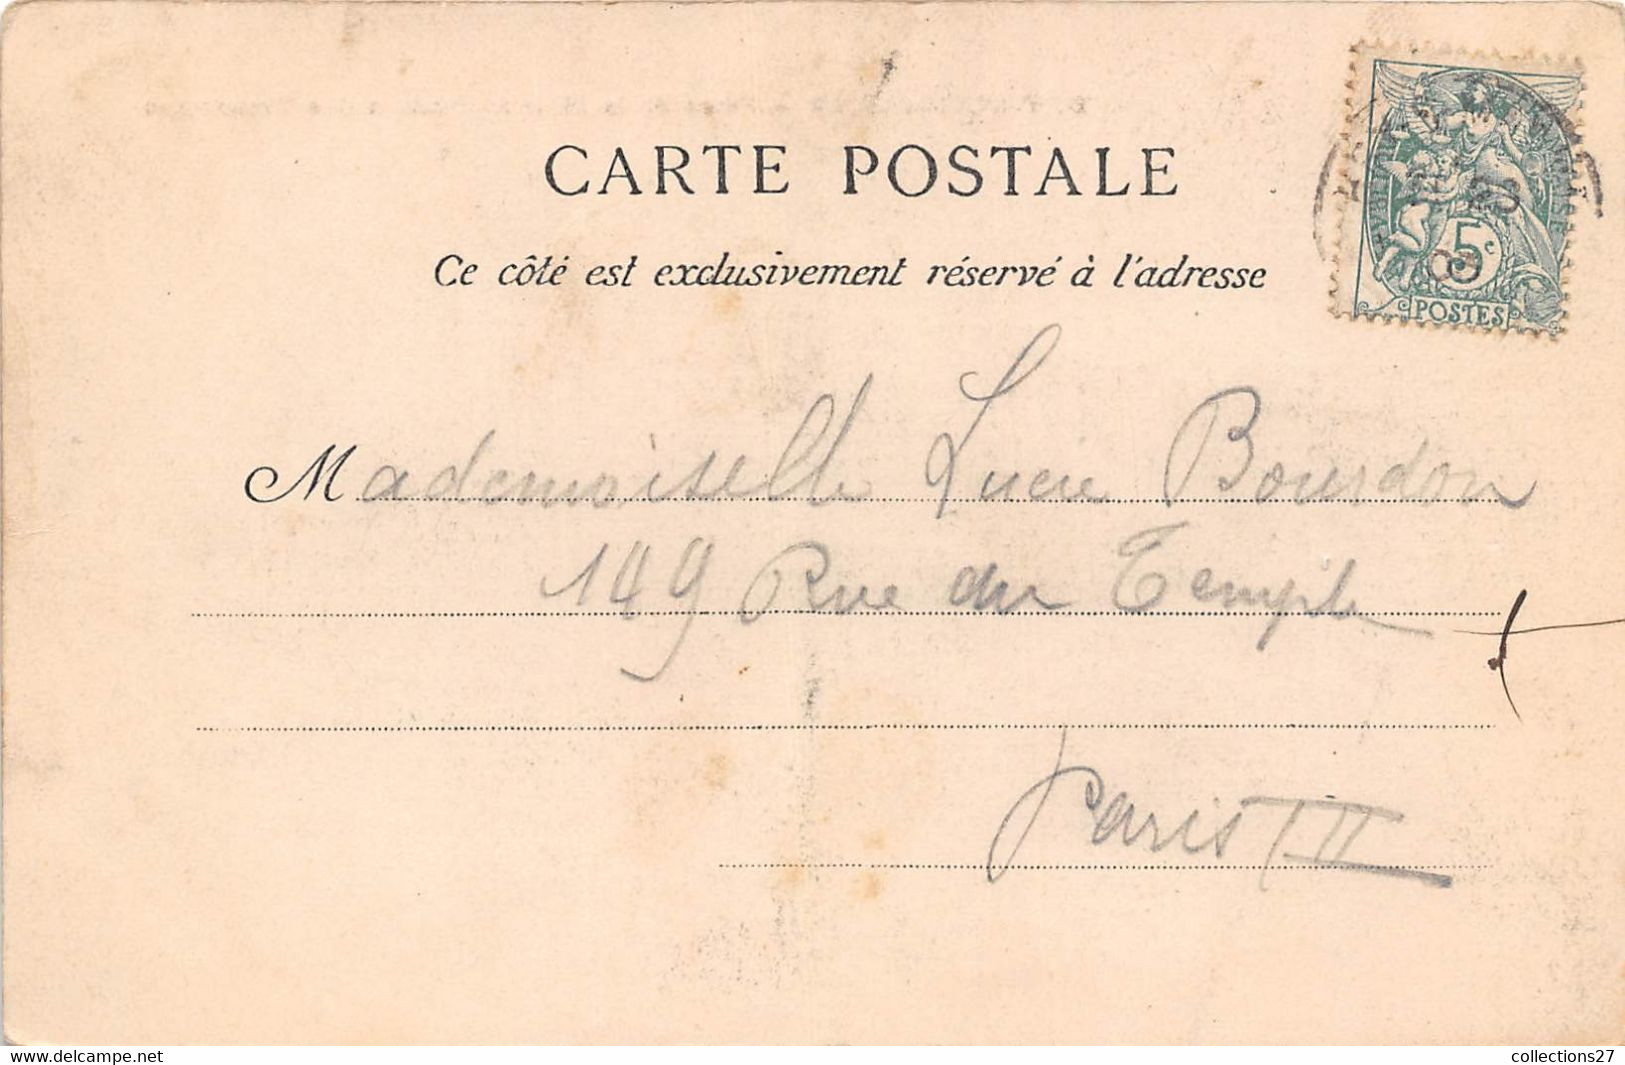 CARTE POSTALE
Ce côté est exclusivement réservé à l'adresse
5c
POSTES
Mademoiselle Lucie Bourdon
149 Rue du Temple
Paris III
collections27